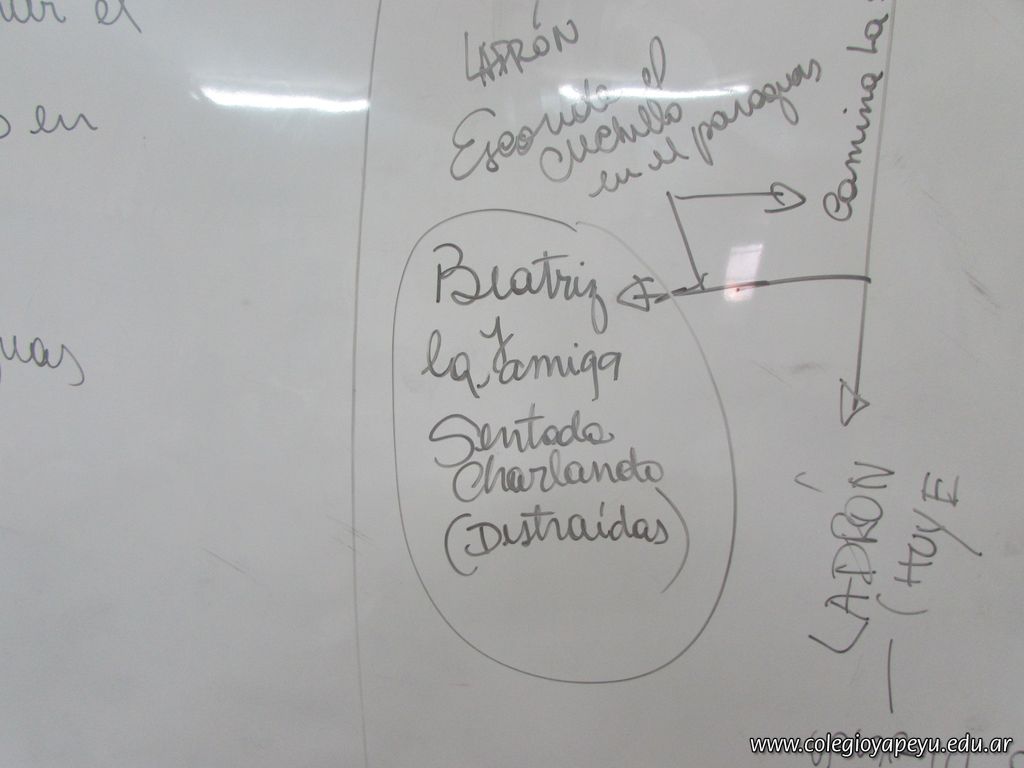 el
en
LADRÓN
Esconde el
cuchillo
en el paraguas
Camina La
Beatriz
Y
la amiga
Sentada
Charlando
(Distraídas)
LADRÓN
(HUYE
www.colegioyapeyu.edu.ar